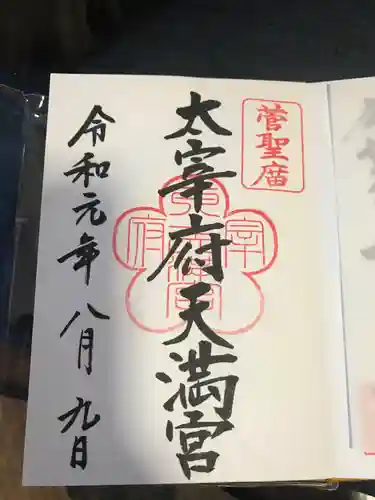 菅聖庿
太宰府天満宮
令和元年八月九日